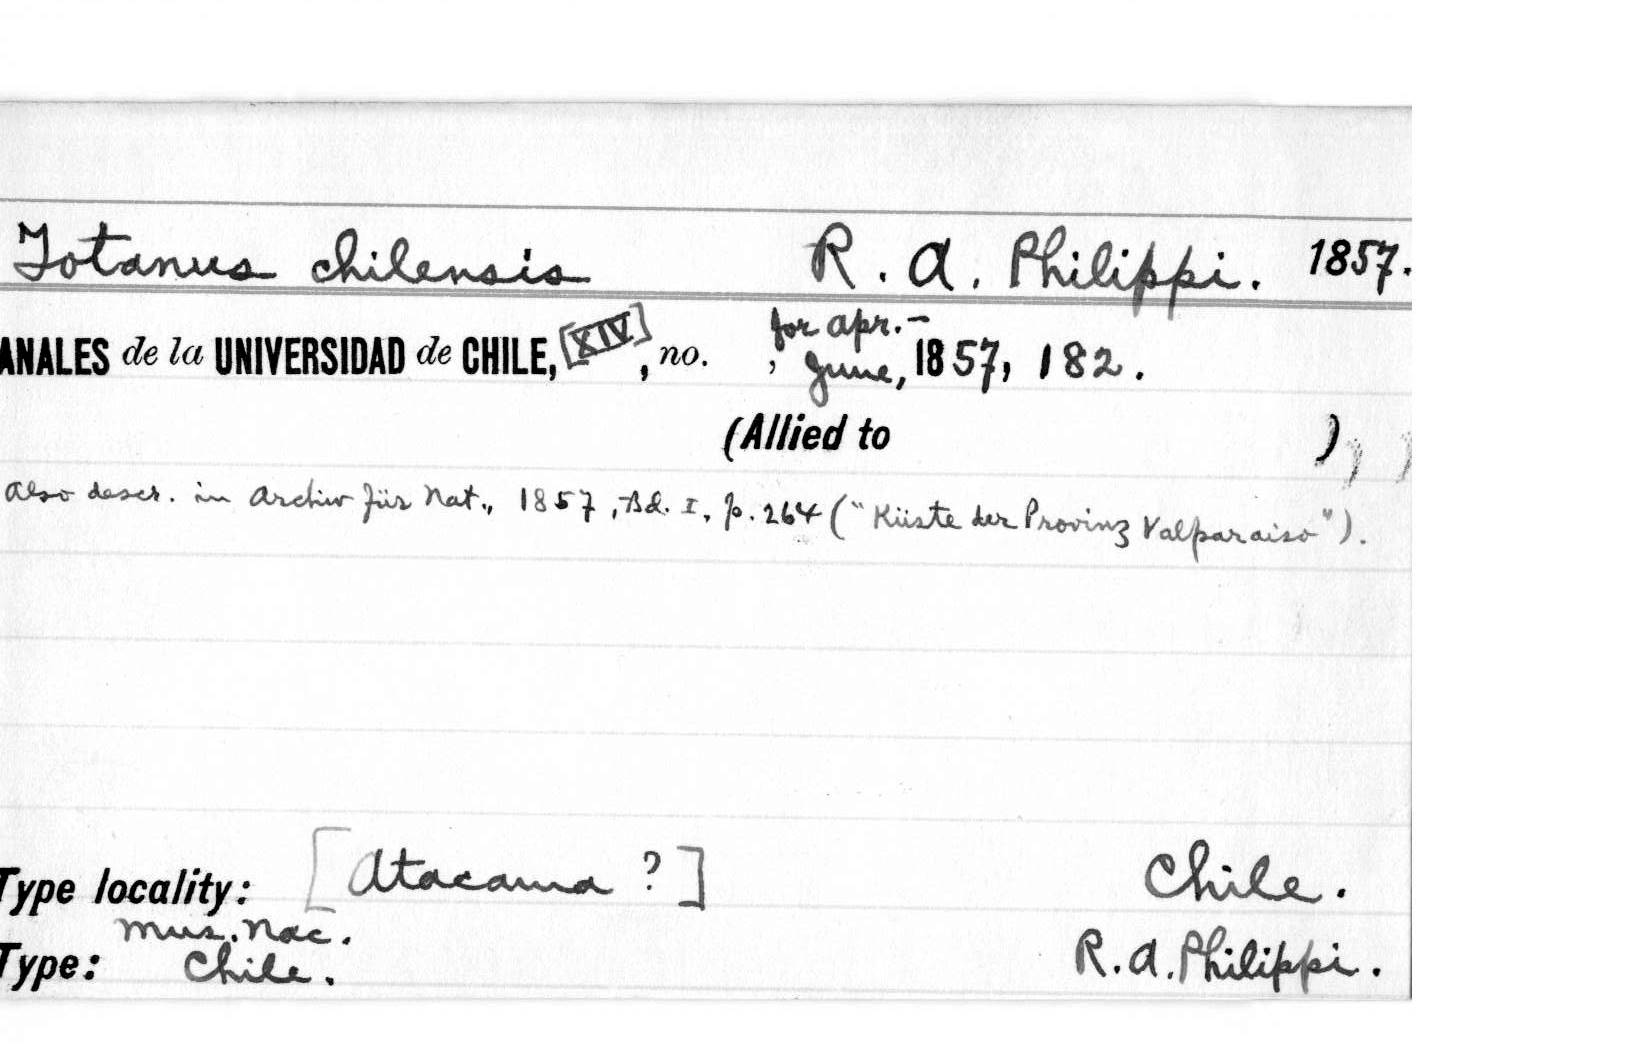 Totanus chilensis R. A. Philippi. 1857.
ANALES de la UNIVERSIDAD de CHILE, [XIV], no. , for Apr.- June, 1857, 182.
(Allied to )
Also descr. in Archiv für Nat., 1857, Bd. I, p. 264 ("Küste der Provinz Valparaiso").
Type locality: [Atacama ?] Chile.
Mus. Nac.
Type: Chile. R. A. Philippi.